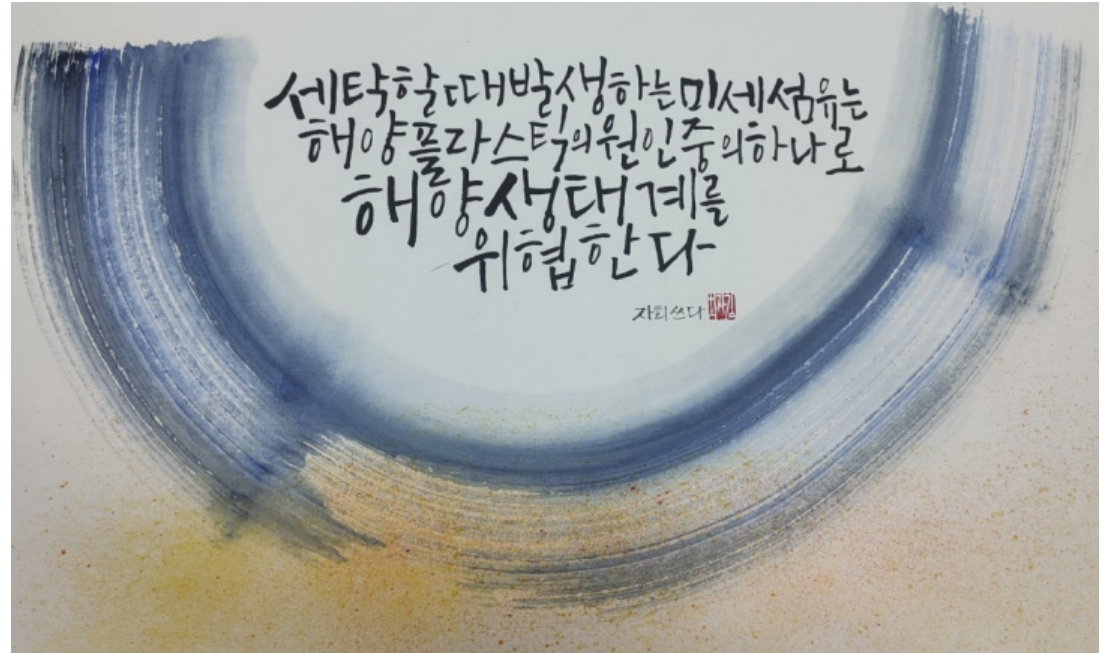 세탁할때발생하는미세섬유는
해양플라스틱의원인중의하나로
해양생태계를
위협한다
자희쓰다